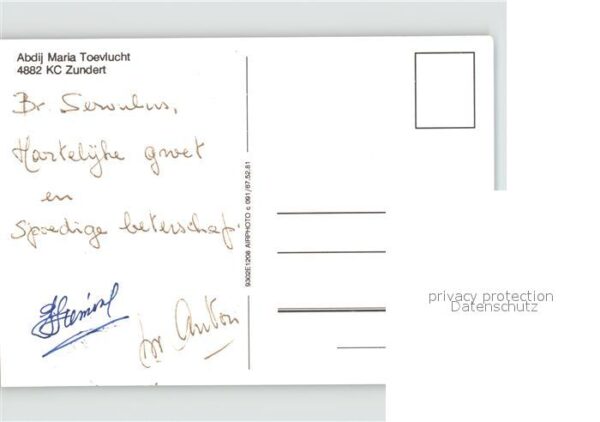 Abdij Maria Toevlucht
4882 KC Zundert
Br. Servulus,
Hartelijke groet
en
spoedige beterschap.
br Anton
9302E1208 AIRPHOTO c 091/67.52.81
privacy protection
Datenschutz